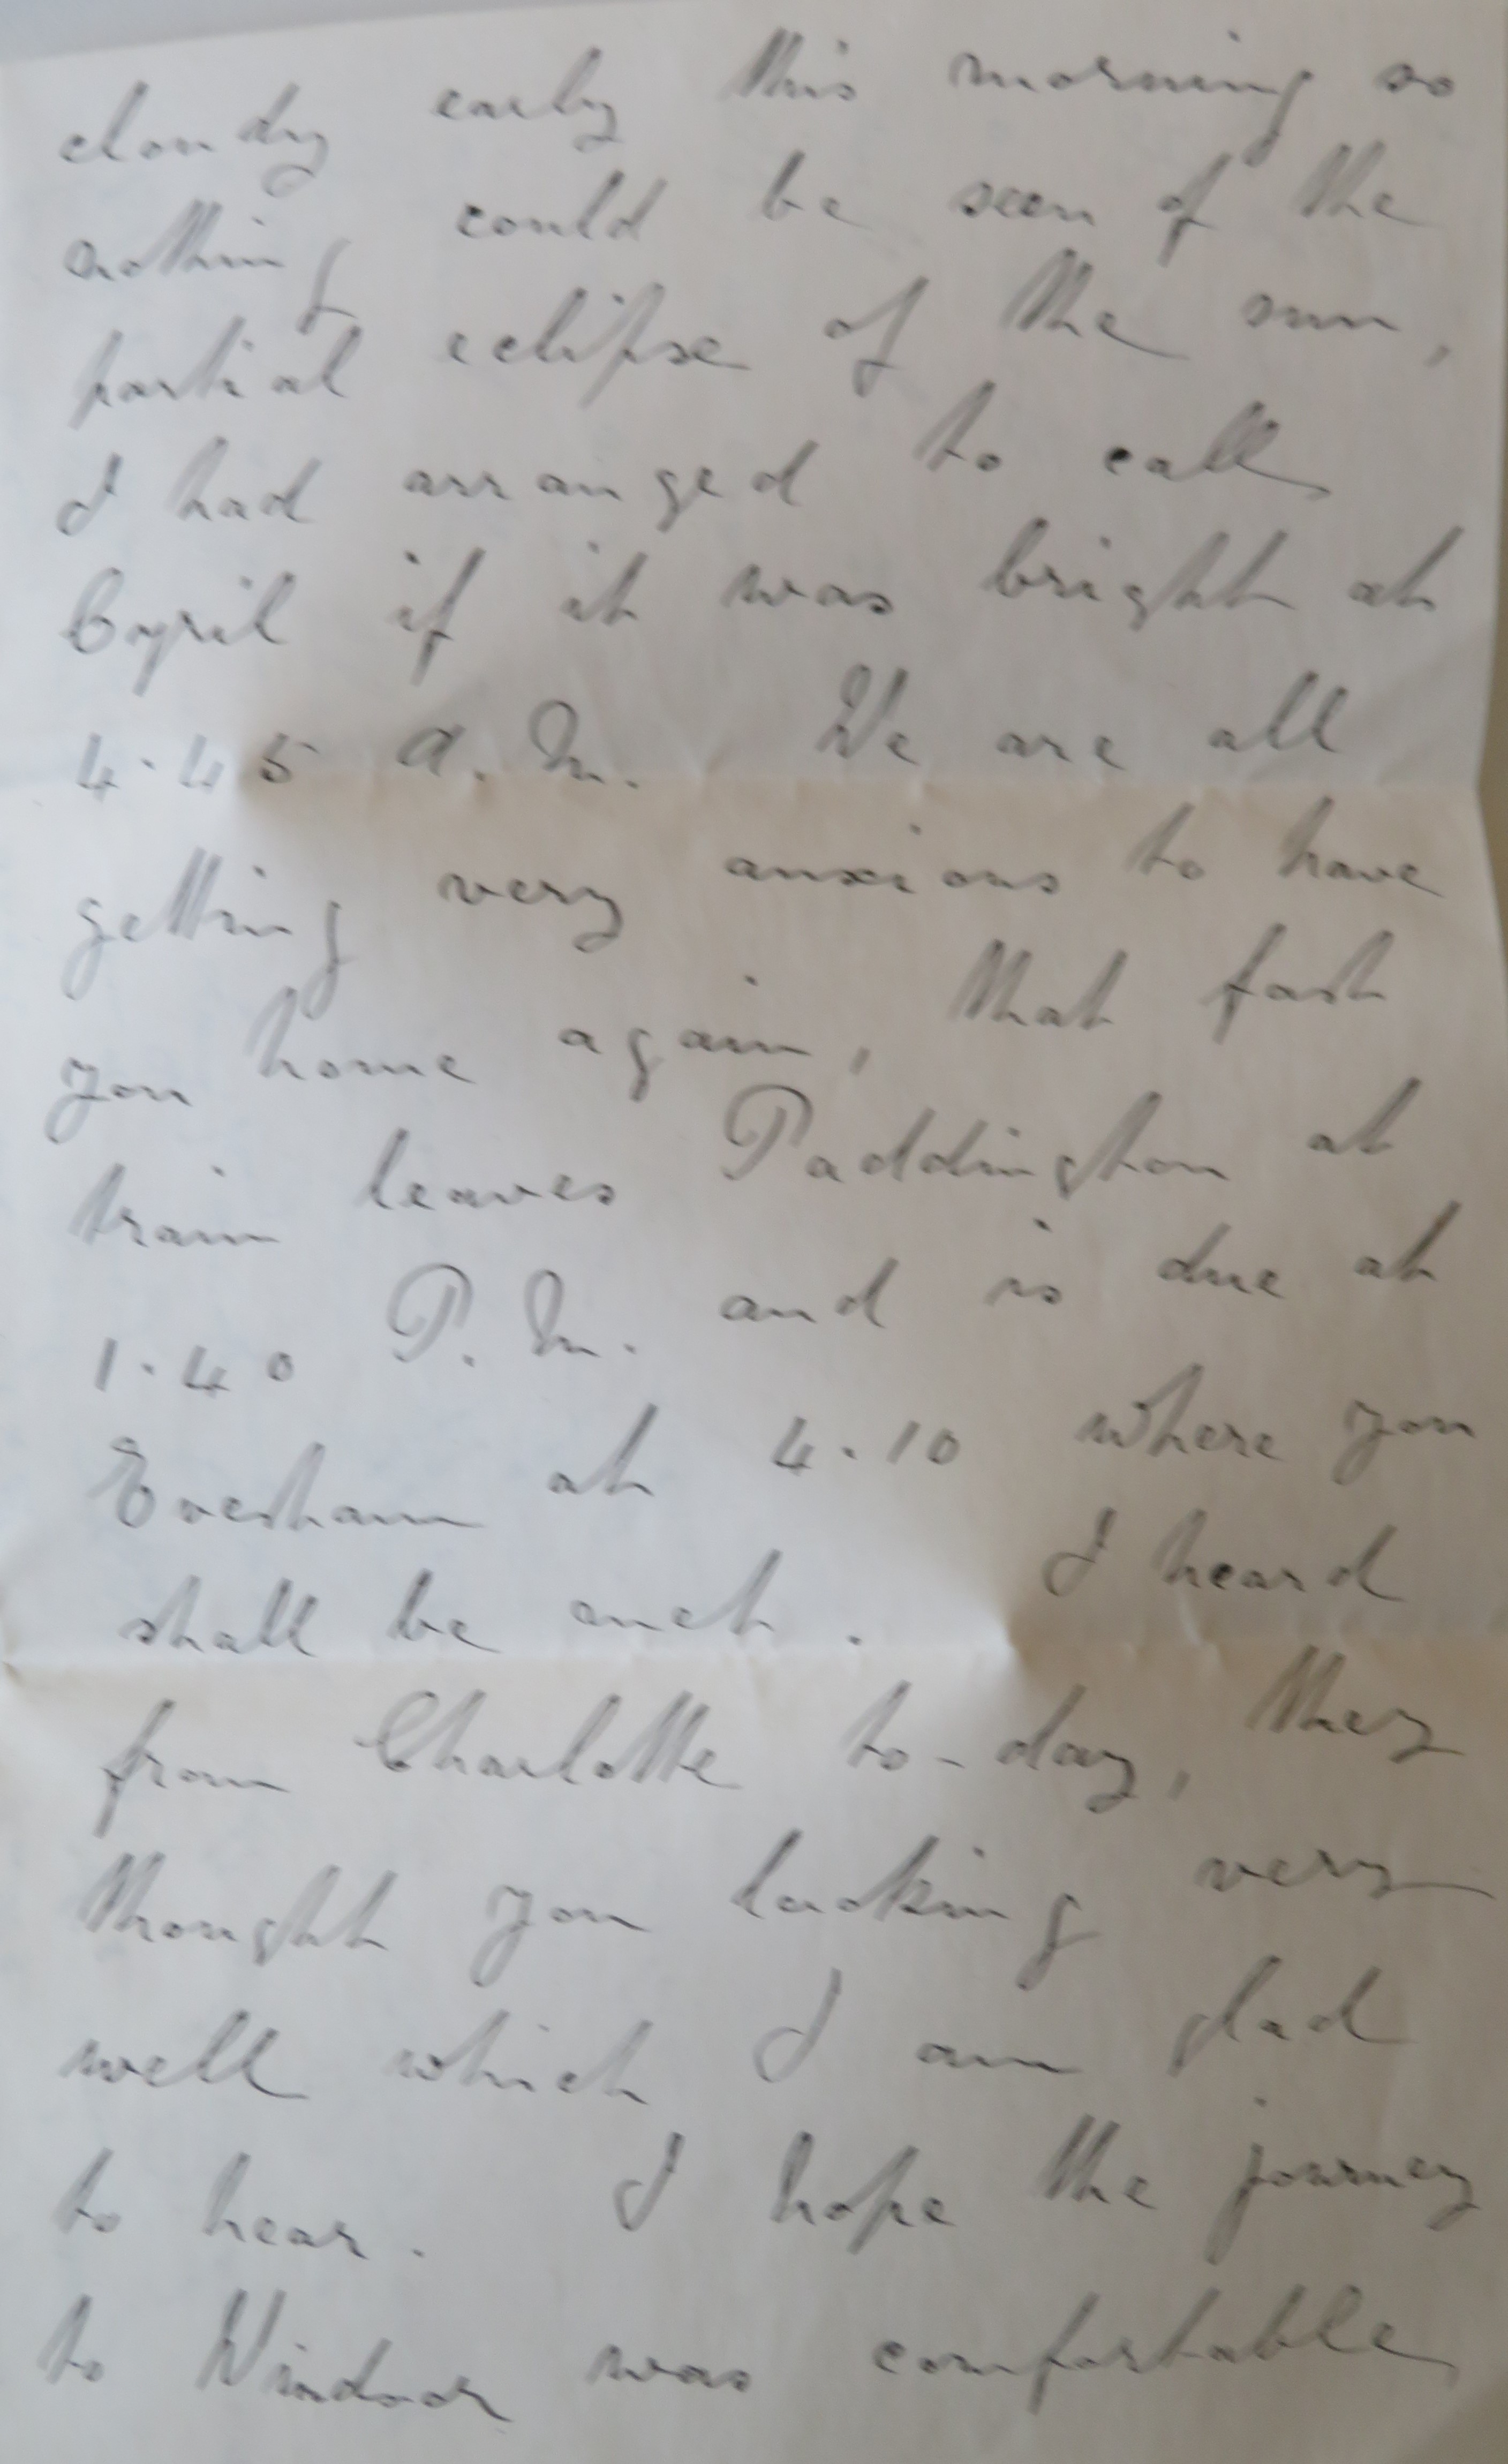 cloudy early this morning so
nothing could be seen of the
partial eclipse of the sun,
I had arranged to call
Cyril if it was bright at
4.45 A.M. We are all
getting very anxious to have
you home again, that fast
train leaves Paddington at
1.40 P.M. and is due at
Evesham at 4.10 where you
shall be met. I heard
from Charlotte to-day, they
thought you looking very
well which I am glad
to hear. I hope the journey
to Windsor was comfortable